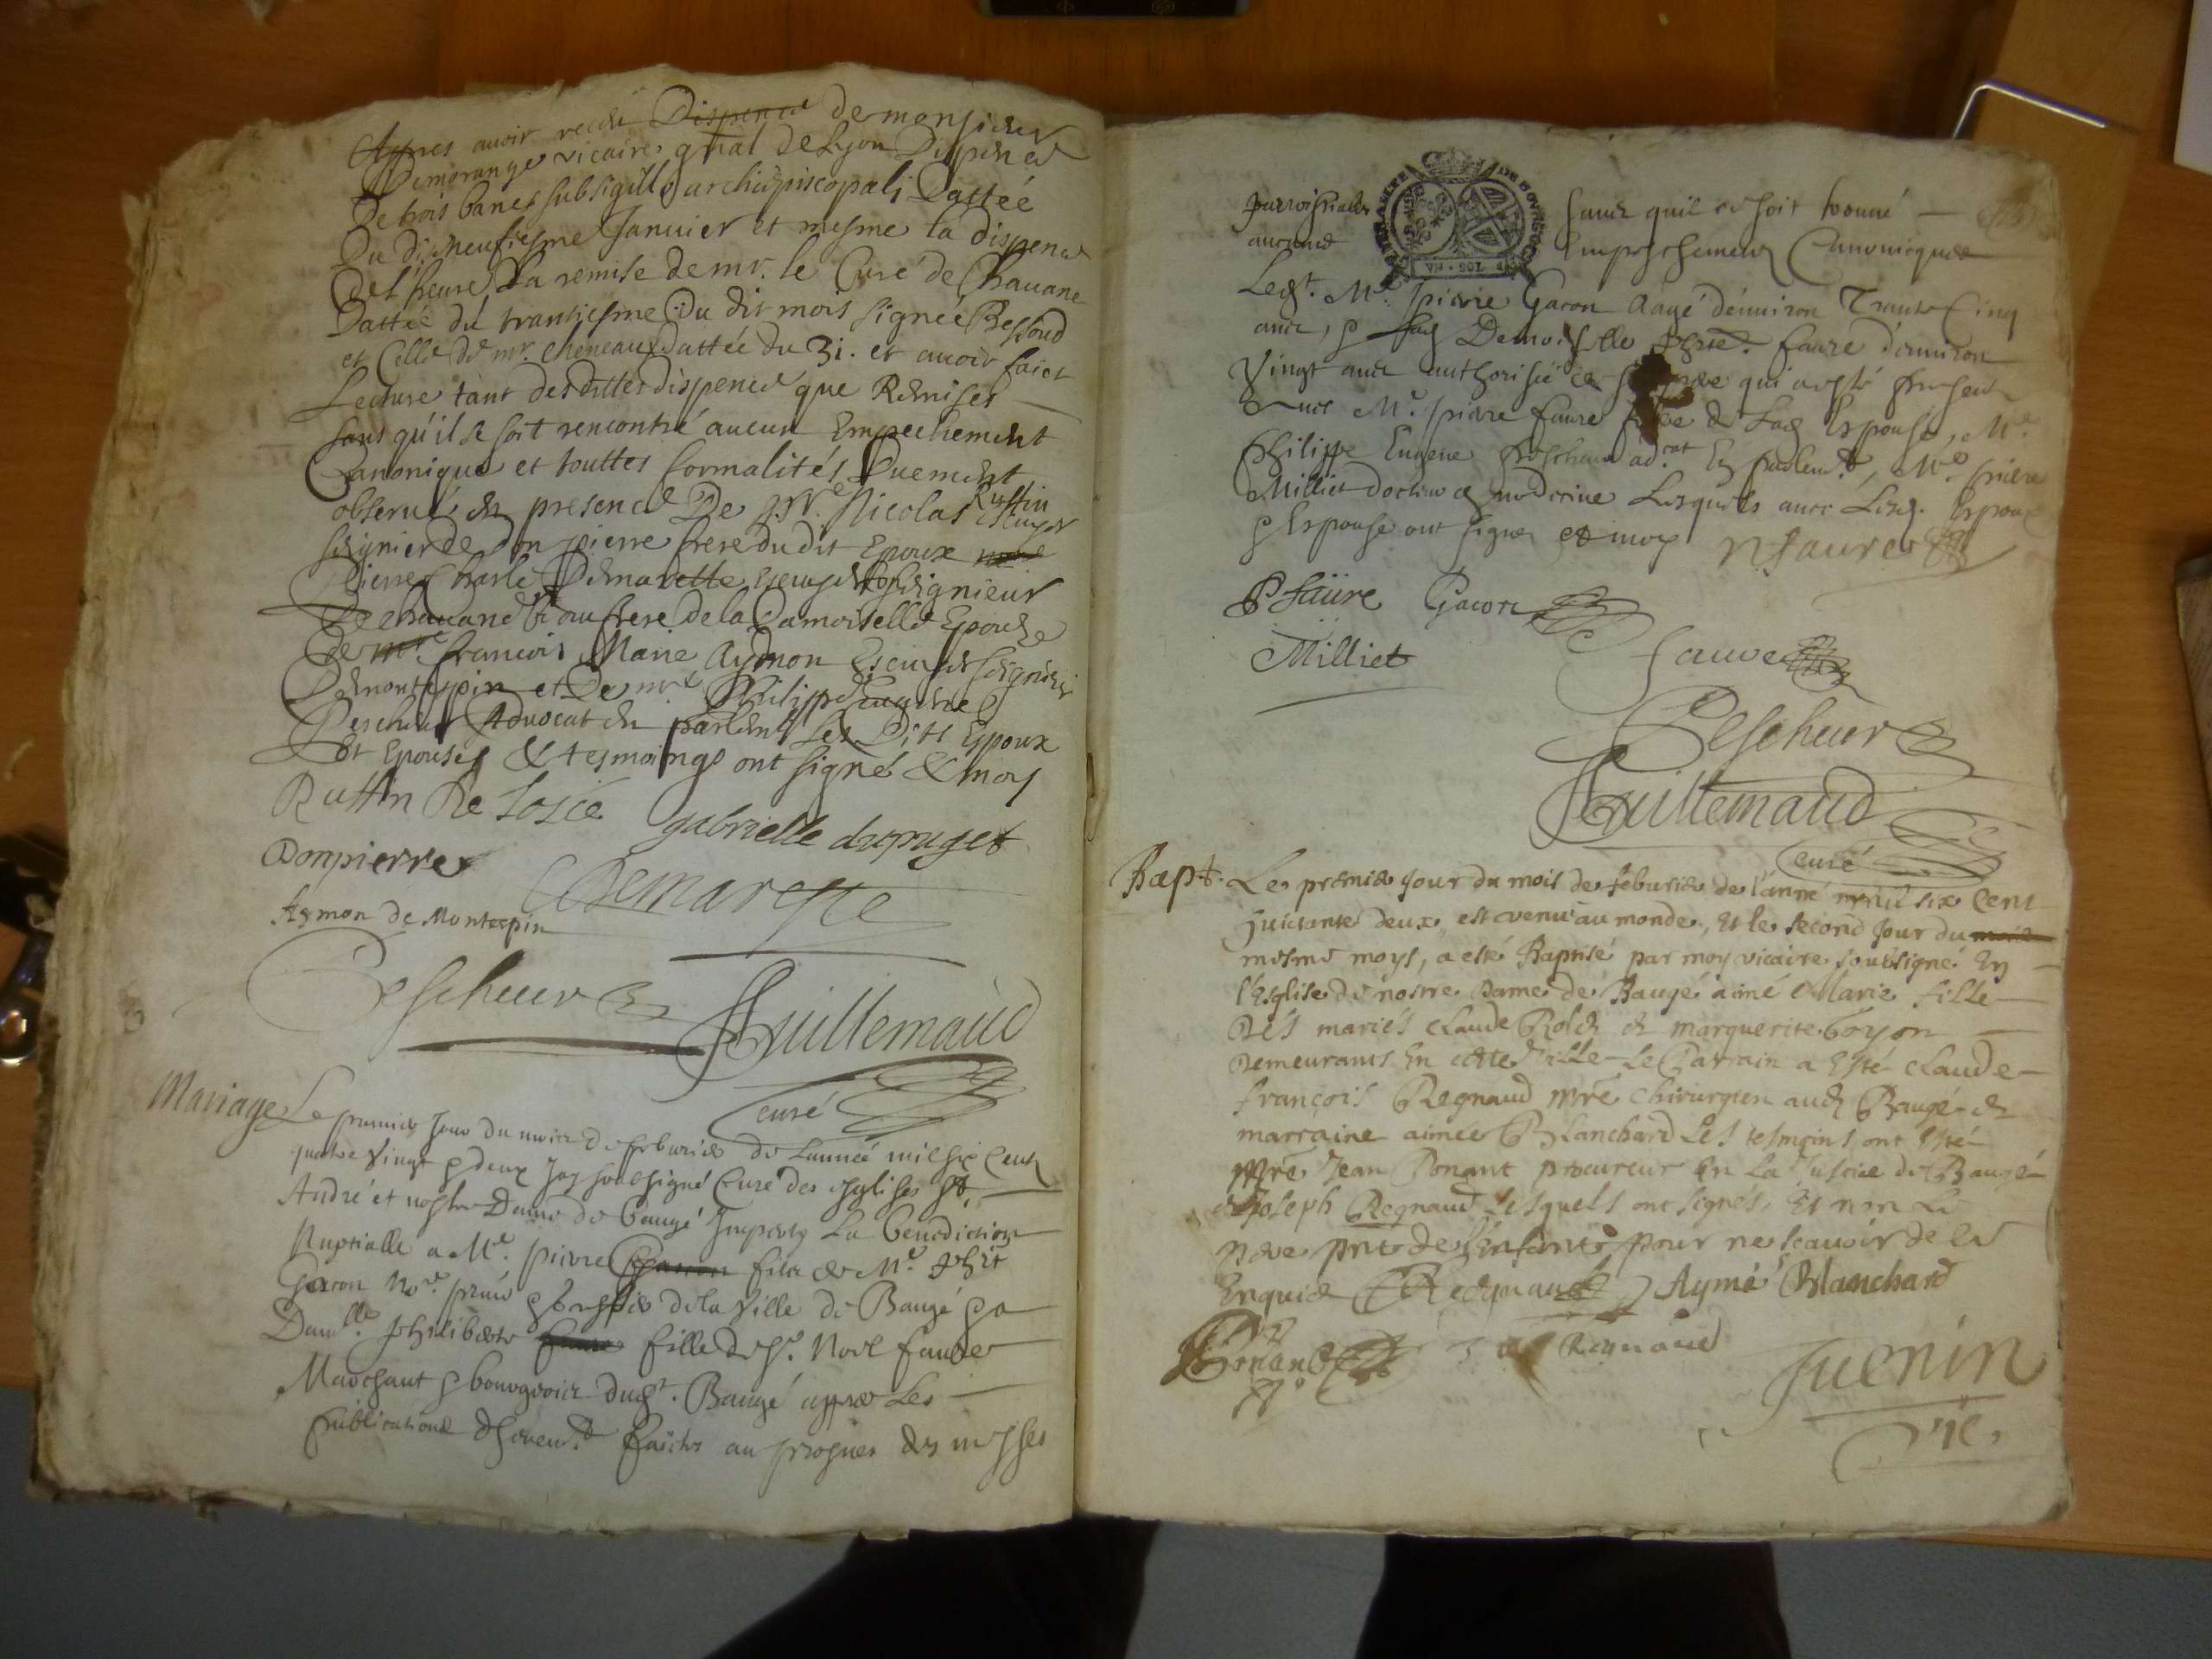 Appres avoir receü Dispence de monsieur
Demorange vicaire gnal de Lyon Dispence
De trois bancs sub sigillo archiepiscopali Dattée
Du dixneufiesme Janvier et mesme la dispence
De l'heure La remise de mr. le Curé de Chavane
Dattée du trantiesme Du dit mois signée Bessoud
et Celle de mr. cheneaux dattée du 31. et avoir faict
Lecture tant desdittes dispence que Remises
sans qu'il se soit rencontré aucun Empechement
Canonique et touttes formalités Duement
observées en presence De Mre Nicolas Ruffin Escuyer
seignier de Don pierre frere du dit Epoux
pierre Charle Demarette Escuyer seignieur
De chavane Beaufrere de la Damoiselle Epouse
de mre francois Marie Aymon Escuyer seignieur
De montespin et De mre Philippe Eugene
Pescheur Advocat en parlemt Les Dits Epoux
Et Epouses & tesmoings ont signé & moy
Ruffin De Losié gabrielle dupuget
Donpierre Demareste
Aymon de Montespin
Pescheur Guillemaud
curé
Mariage Le premier jour du mois de febvrier de L'année mil six cents
quatre vingt & deux Jay soubsigné Curé des esglises St.
André et nostre Dame de baugé Imparty La benediction
Nuptialle a Me. pierre Gacon fils de Me.
Gacon Nore. & bourgeois de la ville de Baugé
Damlle. philiberte faure fille de Sr. Noel faure
Marchant & bourgeois dudt. Baugé appres Les
publications faictes au prosnes des messes
parroissialles sans quil se soit trouvé
aucune Empeschement Canonicque
Ledt. Me. pierre Gacon Aagé denviron Trante Cinq
ans, & lad Demoiselle faure denviron
Vingt ans authorisée de qui a esté present
avec Me. pierre faure frere de Lad Espouse, Me.
Philippe Eugene Pescheur adcat En parlemt, Me. pierre
Milliet docteur en medecine Lesquels avec Lesd. Espoux
& Espouse ont signez et moy N faure
P faüre Gacon
Milliet faure
Pescheur
Guillemaud
curé
Bapt. Le premier jour du mois de feburier de l'anné mil six cent
huictante deux, est venu au monde, Et le second jour du
mesme moys, a esté Baptisé par moy vicaire soubsigné En
l'Esglise de nostre Dame de Baugé aimé Marie fille
Dés mariés claude Rolet et marguerite boyon
Demeurants En cette Ville Le Parrain a Esté claude
françois Regnaud mre chirurgien aud Baugé et
marraine aimée Blanchard Les tesmoins ont Esté
Mre Jean Bonant procureur En La Justice de Baugé
et Joseph Regnaud Lesquels ont signés, Et non Le
pere pnt de l'Enfant pour ne scavoir de ce
Enquis Regnaud Aymé Blanchard
Bonant Regnaud
Juenin
vic